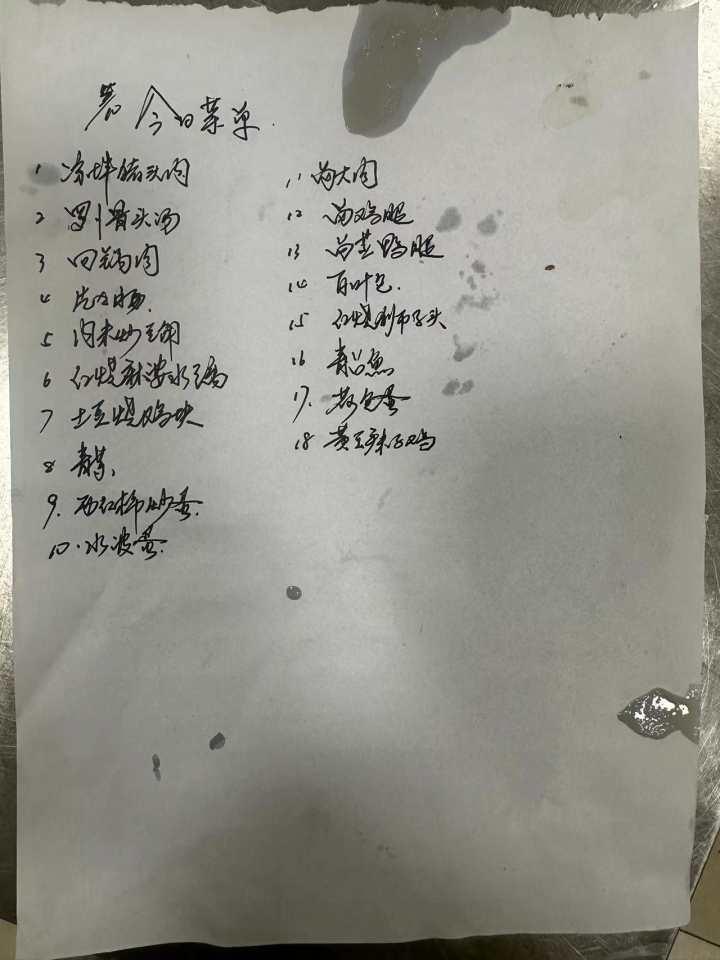 今日菜单
1 凉拌猪头肉
2 罗卜骨头汤
3 回锅肉
4
5 肉末炒豆角
6 红烧麻婆水豆腐
7 土豆烧鸡块
8 青菜
9. 西红柿炒蛋.
10. 水波蛋.
11 卤大肉
12 卤鸡腿
13 卤 鸭腿
14 百叶包.
15 红烧狮子头
16 鱼
17. 荷包蛋
18 黄豆 鸡